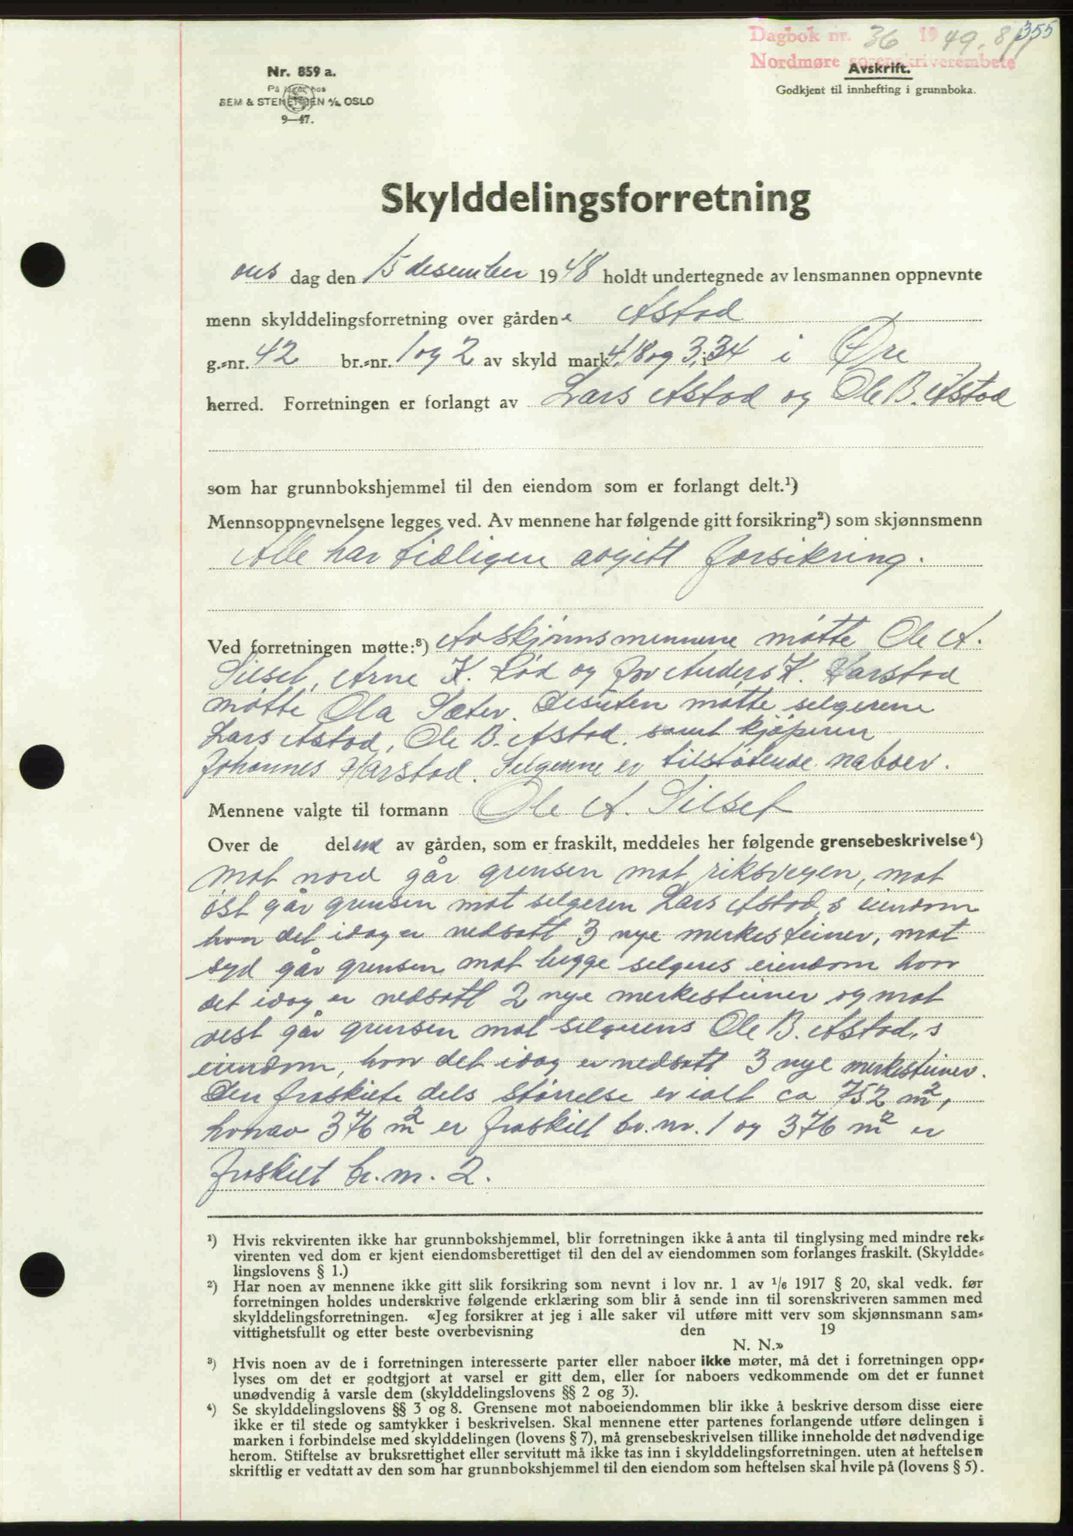 355
Dagbok nr. 36 1949. 8/1
Nordmøre sorenskriverembete
Avskrift.
Godkjent til innhefting i grunnboka.
Nr. 859 a.
På lager hos
SEM & STENERSEN A/S OSLO
9—47.
Skylddelingsforretning
ons dag den 15 desember 1948 holdt undertegnede av lensmannen oppnevnte
menn skylddelingsforretning over gården e Astad
g.-nr. 42 br.-nr. 1 og 2 av skyld mark 4,18 og 3,34 i Øre
herred. Forretningen er forlangt av Lars Astad og Ole B. Astad
som har grunnbokshjemmel til den eiendom som er forlangt delt.¹)
Mennsoppnevnelsene legges ved. Av mennene har følgende gitt forsikring²) som skjønnsmenn
Alle har tidligere avgitt forsikring.
Ved forretningen møtte:³) Av skjønnsmennene møtte Ole A.
Silset, Arne K. Rød og for Anders K. Harstad
møtte Ola Sæter. Desuten møtte selgerene
Lars Astad, Ole B. Astad. samt kjøperen
Johannes Harstad. Selgerne er tilstøtende naboer.
Mennene valgte til formann Ole A. Silset
Over de delene av gården, som er fraskilt, meddeles her følgende grensebeskrivelse⁴)
Mot nord går grensen mot riksvegen, mot
øst går grensen mot selgeren Lars Astad,s eiendom
hvor det idag er nedsatt 3 nye merkesteiner, mot
syd går grensen mot begge selgeres eiendom hvor
det idag er nedsatt 2 nye merkesteiner og mot
vest går grensen mot selgerens Ole B. Astad,s
eiendom, hvor det idag er nedsatt 3 nye merkesteiner.
Den fraskilte dels størrelse er ialt ca 752 m²,
hvorav 376 m² er fraskilt br. nr. 1 og 376 m² er
fraskilt br. nr. 2.
¹) Hvis rekvirenten ikke har grunnbokshjemmel, blir forretningen ikke å anta til tinglysing med mindre rek-
virenten ved dom er kjent eiendomsberettiget til den del av eiendommen som forlanges fraskilt. (Skyldde-
lingslovens § 1.)
²) Har noen av mennene ikke gitt slik forsikring som nevnt i lov nr. 1 av 1/6 1917 § 20, skal vedk. før
forretningen holdes underskrive følgende erklæring som blir å sende inn til sorenskriveren sammen med
skylddelingsforretningen. «Jeg forsikrer at jeg i alle saker vil utføre mitt verv som skjønnsmann sam-
vittighetsfullt og etter beste overbevisning den 19
N. N.»
³) Hvis noen av de i forretningen interesserte parter eller naboer ikke møter, må det i forretningen opp-
lyses om det er godtgjort at varsel er gitt dem, eller for naboers vedkommende om det er funnet
unødvendig å varsle dem (skylddelingslovens §§ 2 og 3).
⁴) Se skylddelingslovens §§ 3 og 8. Grensene mot naboeiendommen blir ikke å beskrive dersom disse eiere
ikke er til stede og samtykker i beskrivelsen. Skal mennene etter partenes forlangende utføre delingen i
marken i forbindelse med skylddelingen (lovens § 7), må grensebeskrivelsen tillike inneholde det nødvendige
herom. Stiftelse av bruksrettighet eller servitutt må ikke tas inn i skylddelingsforretningen, uten at heftelsen
skriftlig er vedtatt av den som har grunnbokshjemmel til den eiendom som heftelsen skal hvile på (lovens § 5).